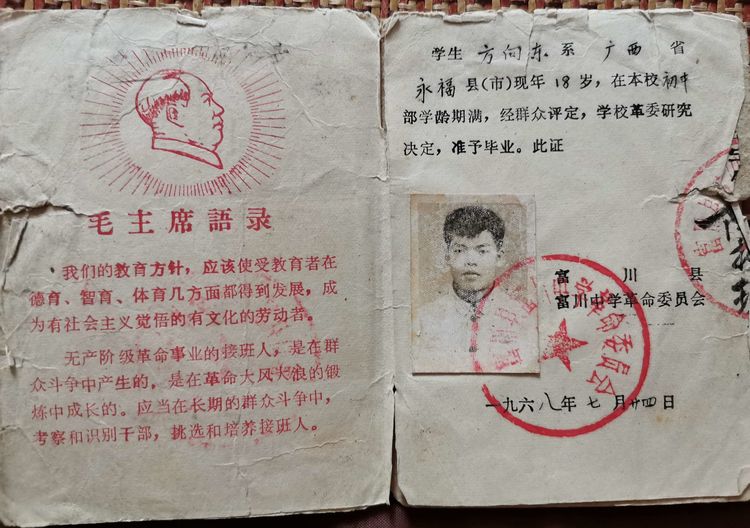 毛主席語录
我们的教育方针，应该使受教育者在
德育、智育、体育几方面都得到发展，成
为有社会主义觉悟的有文化的劳动者。
无产阶级革命事业的接班人，是在群
众斗争中产生的，是在革命大风大浪的锻
炼中成长的。应当在长期的群众斗争中，
考察和识别干部，挑选和培养接班人。
学生 方向东 系 广西 省
永福 县(市)现年 18 岁，在本校 初中
部学龄期满，经群众评定，学校革委研究
决定，准予毕业。此证
富川县
富川中学革命委员会
一九六八年七月廿四日
革命委员会